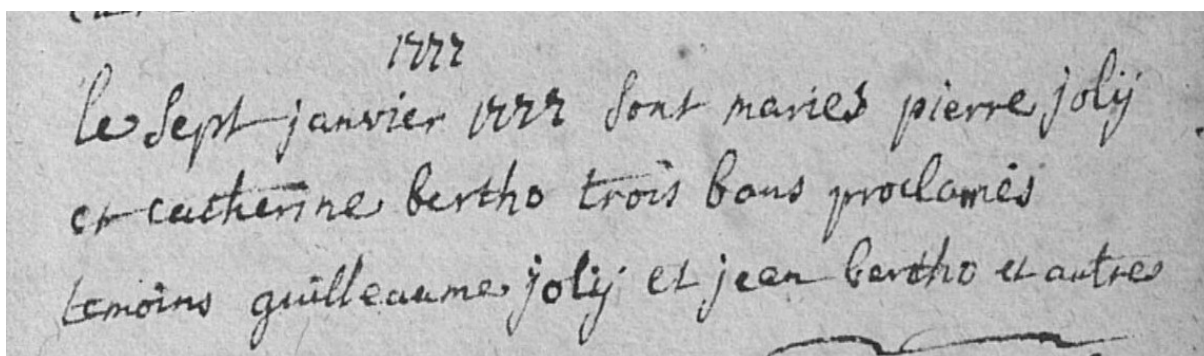 1777
le sept janvier 1777 sont mariés pierre jolij
et catherine bertho trois bans proclamés
temoins guilleaume jolij et jean bertho et autres